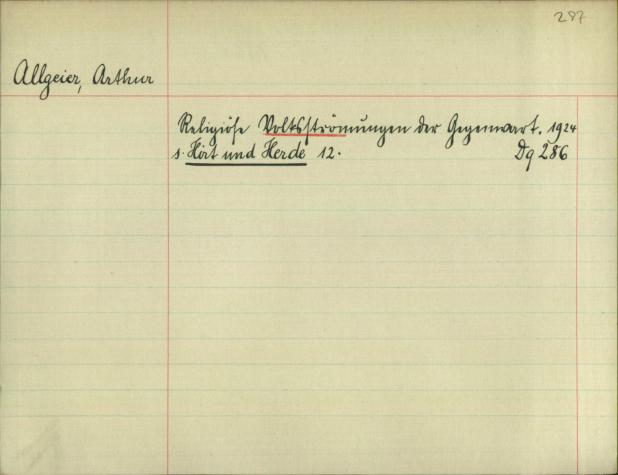 287
Allgeier, Arthur
Religiöse Volksströmungen der Gegenwart. 1924
s. Hirt und Herde 12. Dg 286